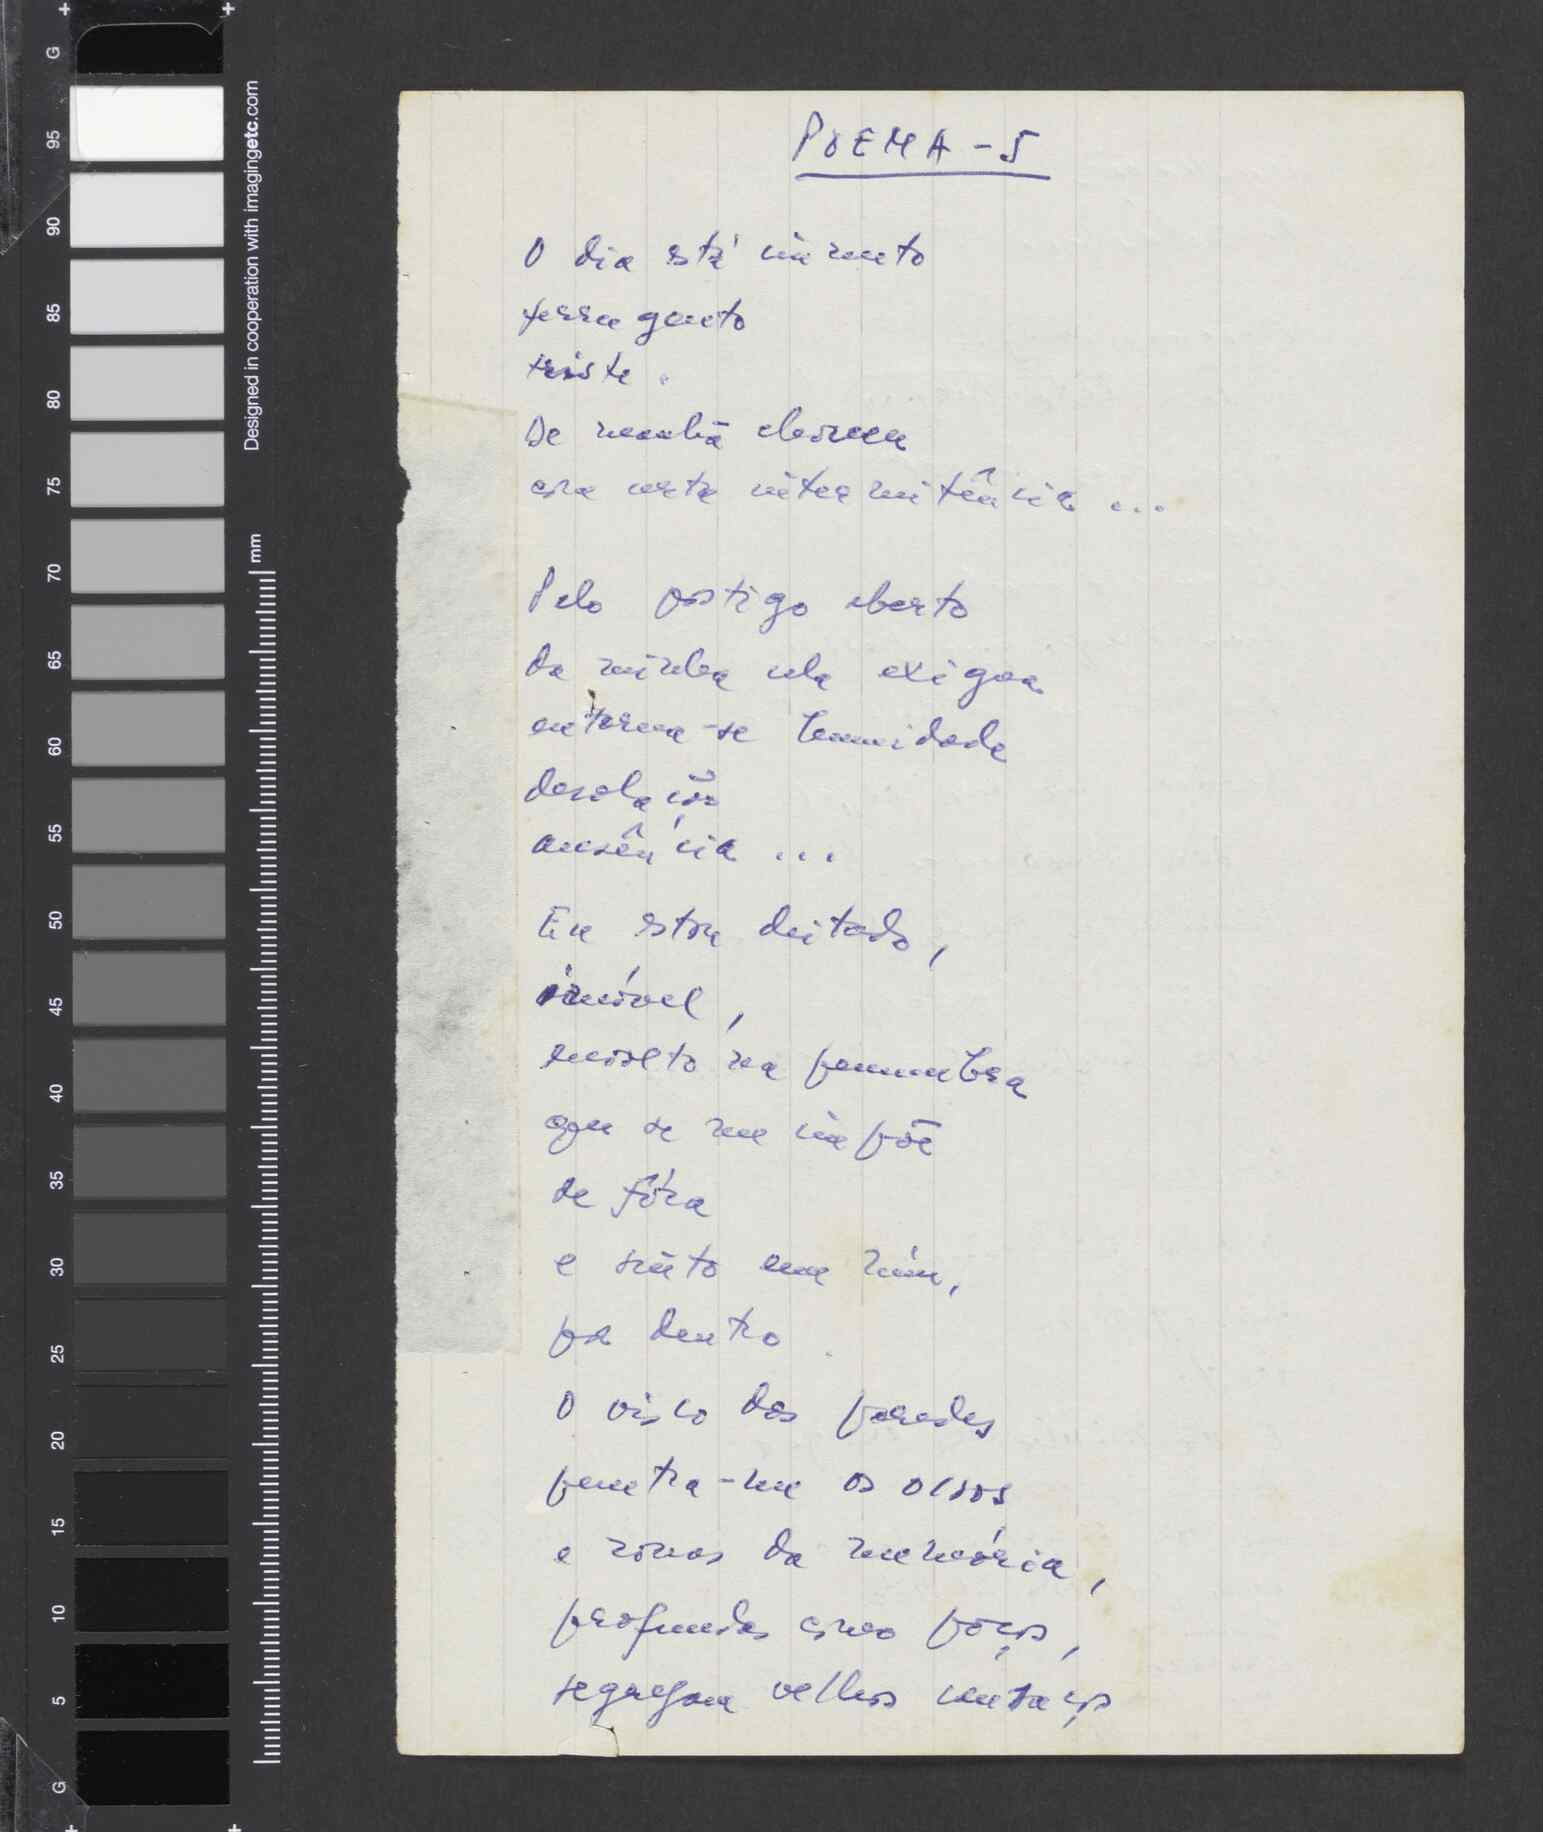 POEMA - 5
O dia está cinzento
ferrugento
triste.
De manhã choveu
com certa intermitência ...
Pelo postigo aberto
da minha cela exigoa
entorna-se humidade
desolação
ausência ...
Eu estou deitado,
imóvel,
envolto na penumbra
que se me impõe
de fóra
e sinto em mim,
por dentro.
O visco das paredes
penetra-me os ossos
e zonas da memória,
profundas como poços,
segregam velhos
G
95
90
85
80
75
70
65
60
55
50
45
40
35
30
25
20
15
10
5
G
Designed in cooperation with imagingetc.com
mm